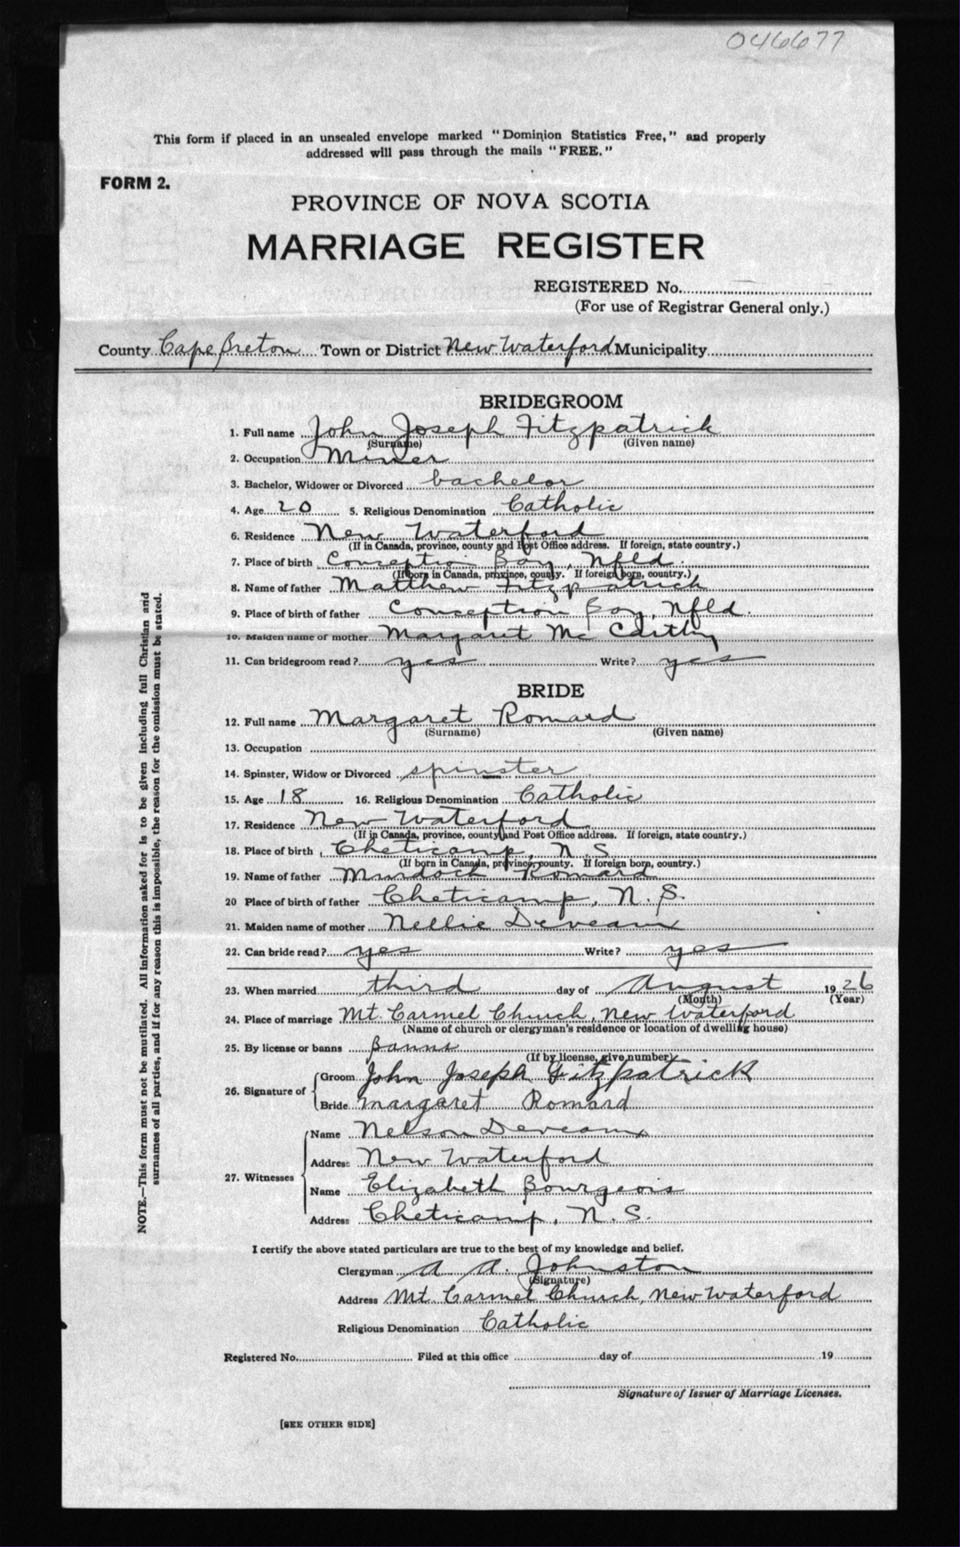 046677
This form if placed in an unsealed envelope marked "Dominion Statistics Free," and properly
addressed will pass through the mails "FREE."
FORM 2.
PROVINCE OF NOVA SCOTIA
MARRIAGE REGISTER
REGISTERED No.
(For use of Registrar General only.)
County Cape Breton Town or District New Waterford Municipality
BRIDEGROOM
1. Full name John Joseph Fitzpatrick
(Surname) (Given name)
2. Occupation Miner
3. Bachelor, Widower or Divorced bachelor
4. Age 20 5. Religious Denomination Catholic
6. Residence New Waterford
(If in Canada, province, county and Post Office address. If foreign, state country.)
7. Place of birth Conception Bay, Nfld.
(If born in Canada, province, county. If foreign born, country.)
8. Name of father Matthew Fitzpatrick
9. Place of birth of father Conception Bay, Nfld.
10. Maiden name of mother Margaret Mc Carthy
11. Can bridegroom read? yes Write? yes
BRIDE
12. Full name Margaret Romard
(Surname) (Given name)
13. Occupation
14. Spinster, Widow or Divorced spinster
15. Age 18 16. Religious Denomination Catholic
17. Residence New Waterford
(If in Canada, province, county and Post Office address. If foreign, state country.)
18. Place of birth Cheticamp, N S
(If born in Canada, province, county. If foreign born, country.)
19. Name of father Murdock Romard
20 Place of birth of father Cheticamp, N. S.
21. Maiden name of mother Nellie Deveau
22. Can bride read? yes Write? yes
23. When married third day of August 1926
(Month) (Year)
24. Place of marriage Mt. Carmel Church, New Waterford
(Name of church or clergyman's residence or location of dwelling house)
25. By license or banns Banns
(If by license, give number)
26. Signature of Groom John Joseph Fitzpatrick
Bride Margaret Romard
27. Witnesses Name Nelson Deveau
Address New Waterford
Name Elizabeth Bourgeois
Address Cheticamp, N. S.
I certify the above stated particulars are true to the best of my knowledge and belief.
Clergyman A. A. Johnston
(Signature)
Address Mt. Carmel Church, New Waterford
Religious Denomination Catholic
Registered No. Filed at this office day of 19
Signature of Issuer of Marriage Licenses.
[SEE OTHER SIDE]
NOTE.—This form must not be mutilated. All information asked for is to be given including full Christian and
surnames of all parties, and if for any reason this is impossible, the reason for the omission must be stated.